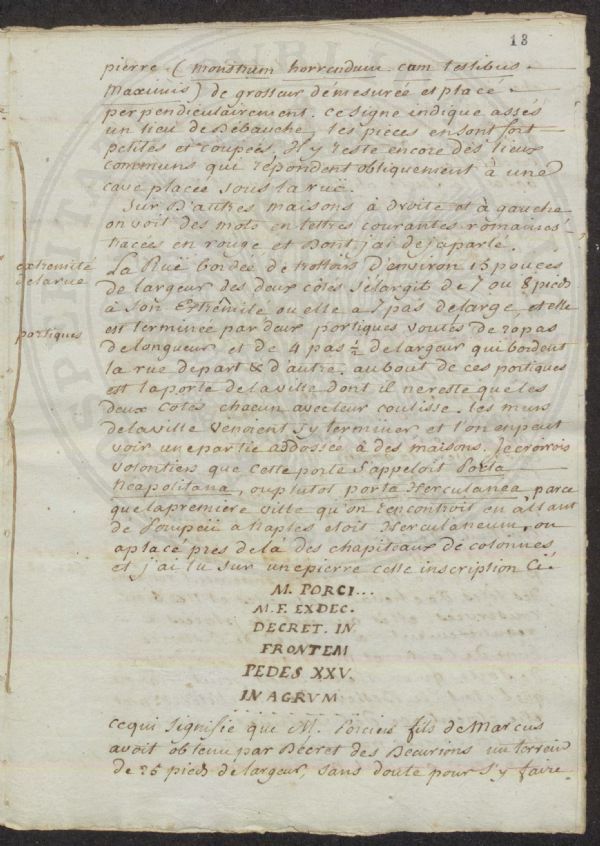 13
pierre (monstrum horrendum cum testibus
maximis) de grosseur démesurée et placé
perpendiculairement. ce signe indique assés
un lieu de Debauche, les pieces en sont fort
petites et coupées. Il y reste encore des lieux
communs qui répondent obliquement à une
cave placée sous la ruë.
Sur D'autres maisons à droite et à gauche
on voit des mots en lettres courantes romaines
tracées en rouge et Dont j'ai deja parlé.
extremité
de la rue
La Ruë bordée de trottoirs d'environ 15 pouces
de largeur des deux côtés s'elargit de 7 ou 8 pieds
à son Extrêmité ou elle a 7 pas de large, et elle
est terminée par deux portiques voutés de 20 pas
portiques
de longueur et de 4 pas ½ de largeur qui bordent
la rue de part & d'autre. au bout de ces portiques
est la porte de la ville dont il ne reste que les
deux cotés chacun avec leur coulisse. les murs
de la ville venoient s'y terminer et l'on en peut
voir une partie adossée à des maisons. Je croirois
volontiers que cette porte s'appeloit Porta
Neapolitana, ou plutot porta Herculanea, parce
que la premiere ville qu'on rencontroit en allant
de Pompeii a Naples etoit Herculaneum, on
a placé pres de là des chapiteaux de colonnes
et j'ai lu sur une pierre cette inscription Ci:
M. PORCI...
M. F. EX DEC.
DECRET. IN
FRONTEM
PEDES XXV.
IN AGRVM
. . . . . . . .
ce qui signifie que M. Porcius fils de Marcus
avoit obtenu par Decret des Decurions un terrein
de 25 pieds de largeur, sans doute pour s'y faire